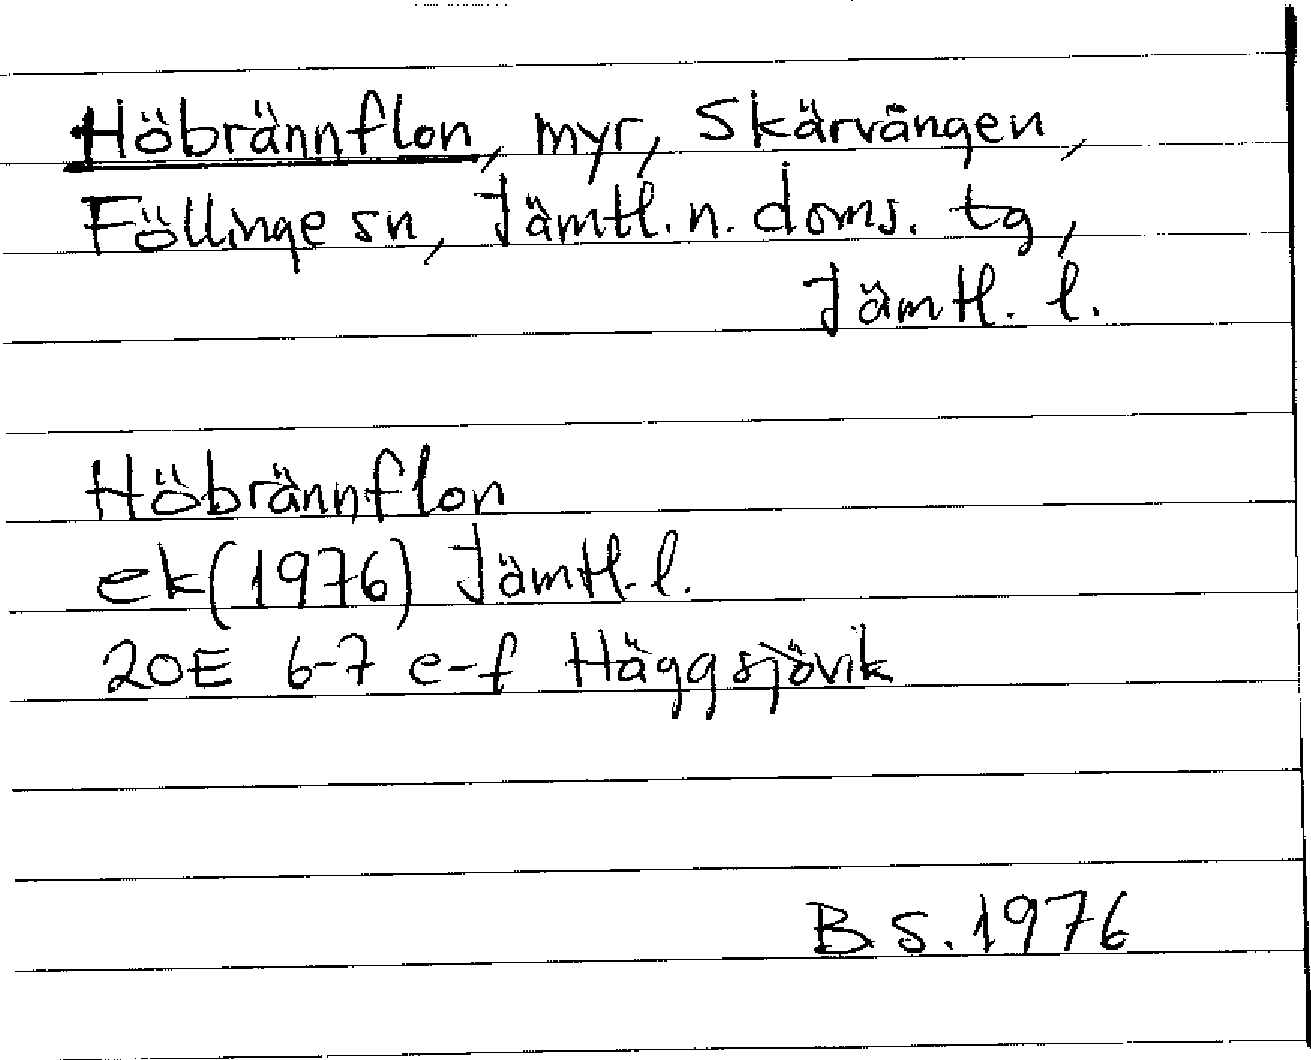 Höbrännflon, myr, Skärvången,
Föllinge sn, Jämtl. n. doms. tg,
Jämtl. l.
Höbrännflon
ek(1976) Jämtl. l.
20E 6-7 e-f Häggsjövik
B.S. 1976